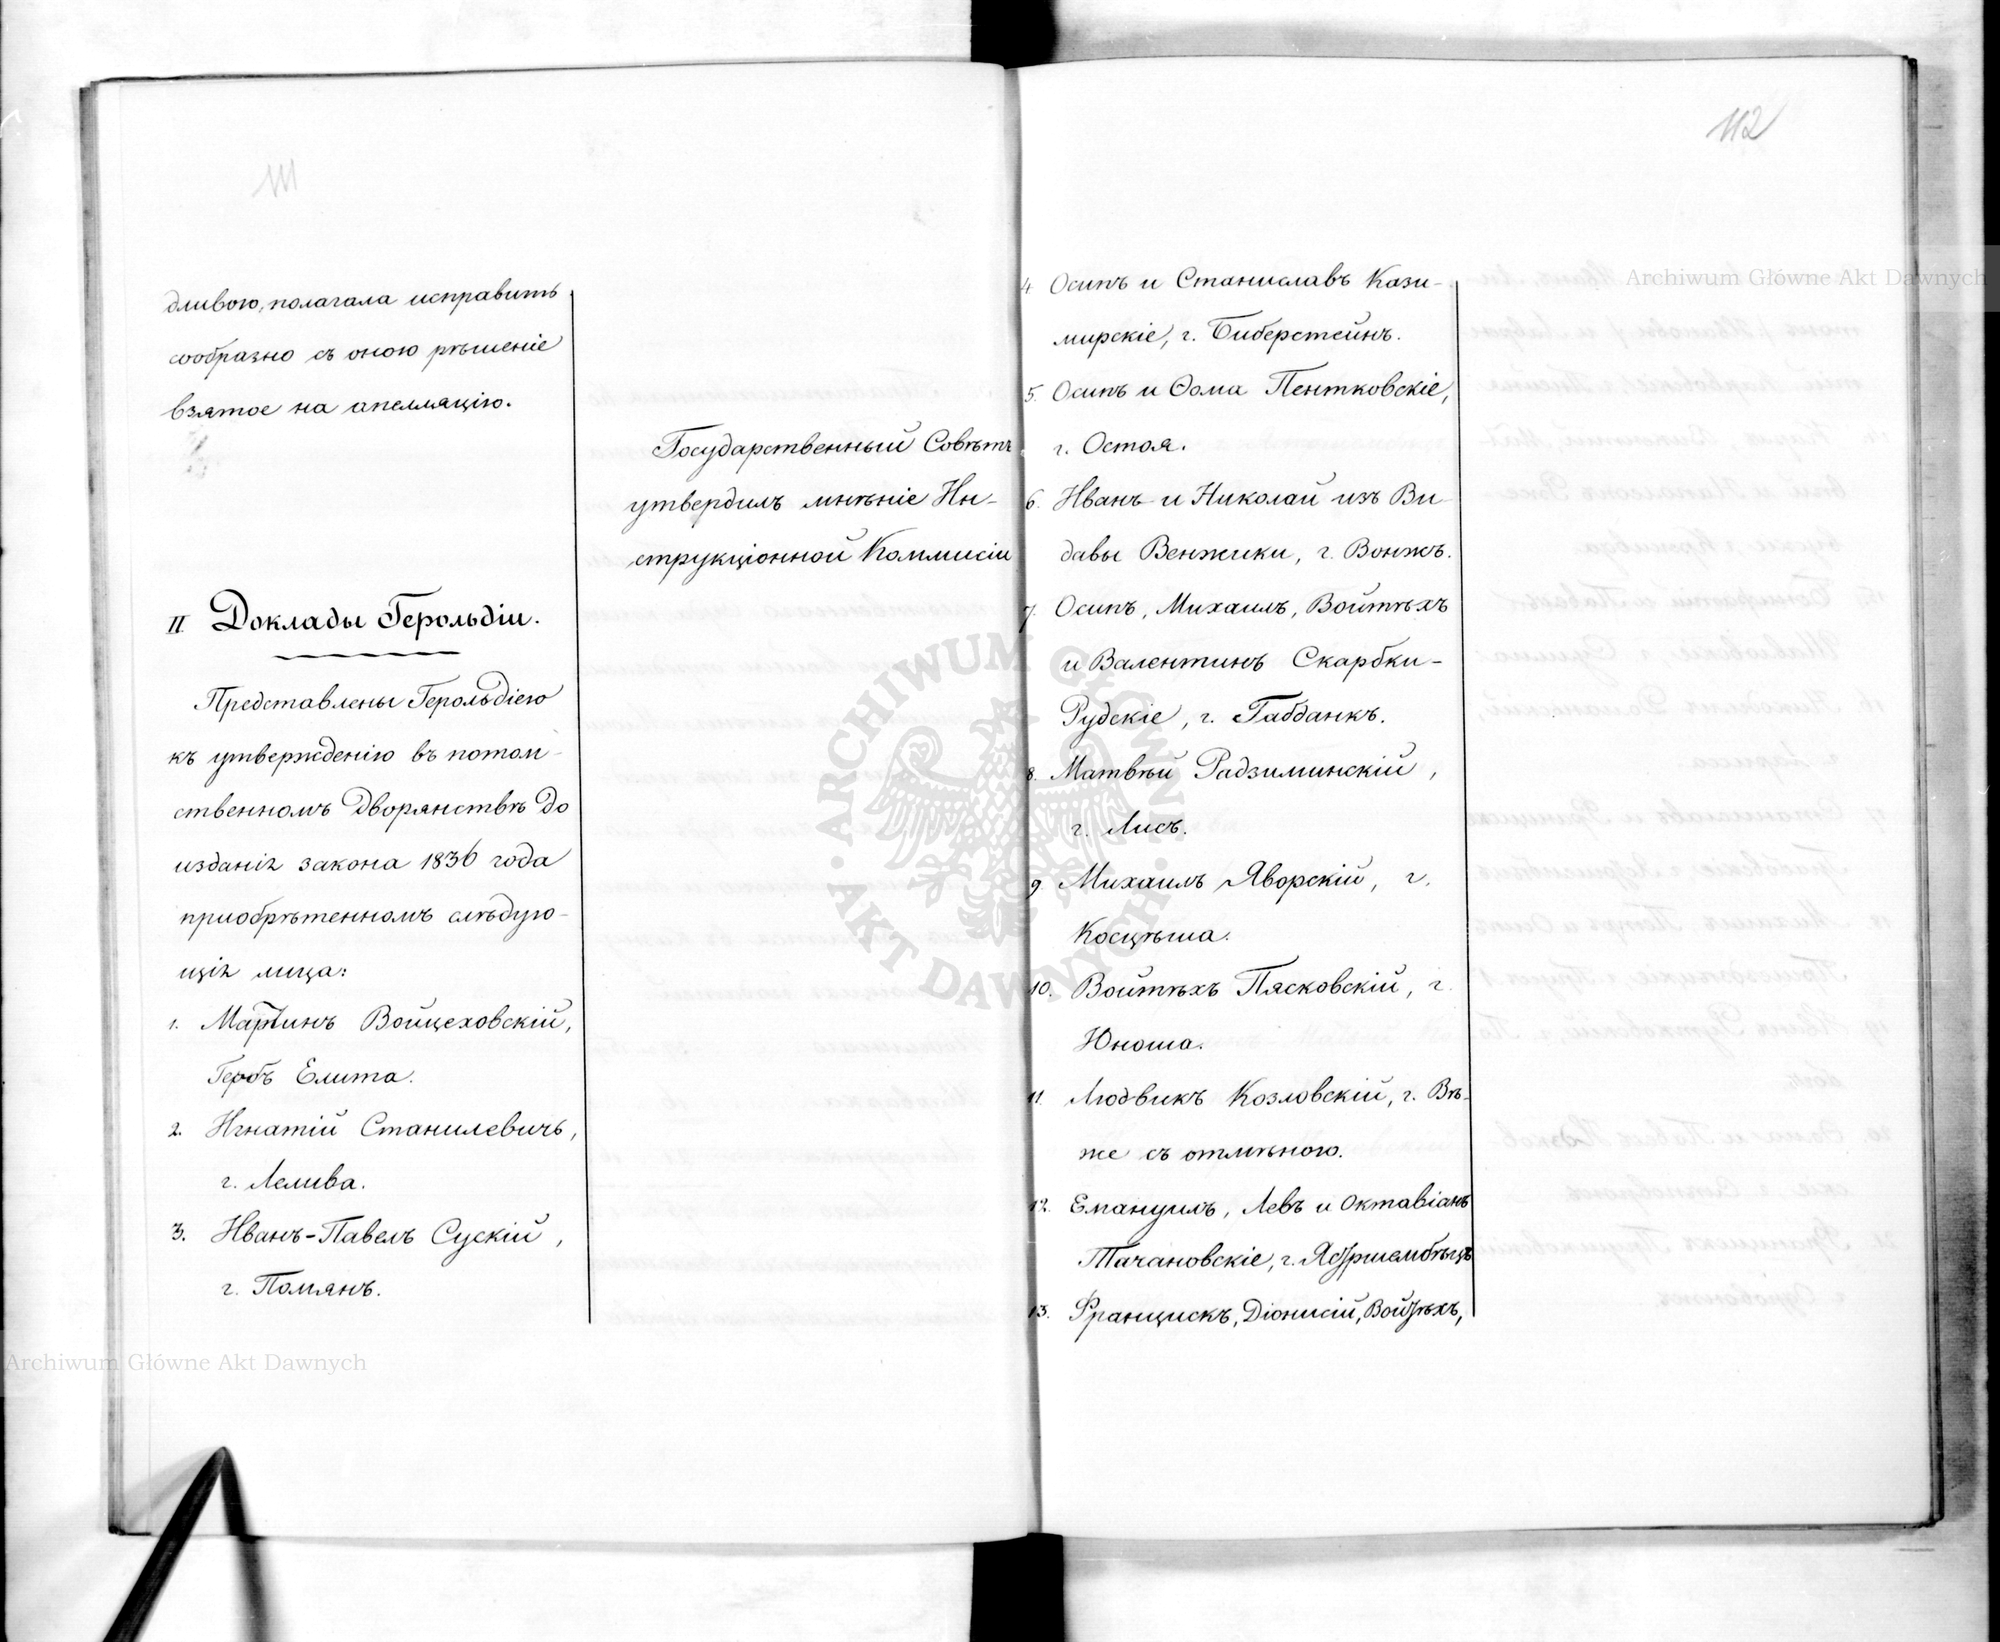 111
дливою, полагала исправить
сообразно съ оною рѣшеніе
взятое на апелляцію.
Государственный Совѣтъ
утвердилъ мнѣніе Ин-
струкціонной Коммисіи
II Доклады Герольдіи.
Представлены Герольдіею
къ утвержденію въ потом-
ственномъ Дворянствѣ до
изданія закона 1836 года
пріобрѣтенномъ слѣдую-
щія лица:
1. Мартинъ Войцеховскій,
Гербъ Елита.
2. Игнатій Станилевичъ,
г. Лелива.
3. Иванъ-Павелъ Сускій,
г. Помянъ.
112
4 Осипъ и Станиславъ Кази-
мирскіе, г. Биберстейнъ.
5. Осипъ и Ѳома Пентковскіе,
г. Остоя.
6. Иванъ и Николай изъ Ви-
давы Венжики, г. Вонжъ.
7. Осипъ, Михаилъ, Войтѣхъ
и Валентинъ Скарбки-
Рудскіе, г. Габданкъ.
8. Матвѣй Радзиминскій,
г. Лисъ.
9. Михаилъ Яворскій, г.
Косцѣша.
10. Войтѣхъ Пясковскій, г.
Юноша.
11. Людвикъ Козловскій, г. Вѣ-
же съ отмѣною.
12. Емануилъ, Левъ и Октавіанъ
Тачановскіе, г. Ястршембѣцъ
13. Францискъ, Діонисій, Войтѣхъ,
Archiwum Główne Akt Dawnych
Archiwum Główne Akt Dawnych
ARCHIWUM GŁÓWNE AKT DAWNYCH